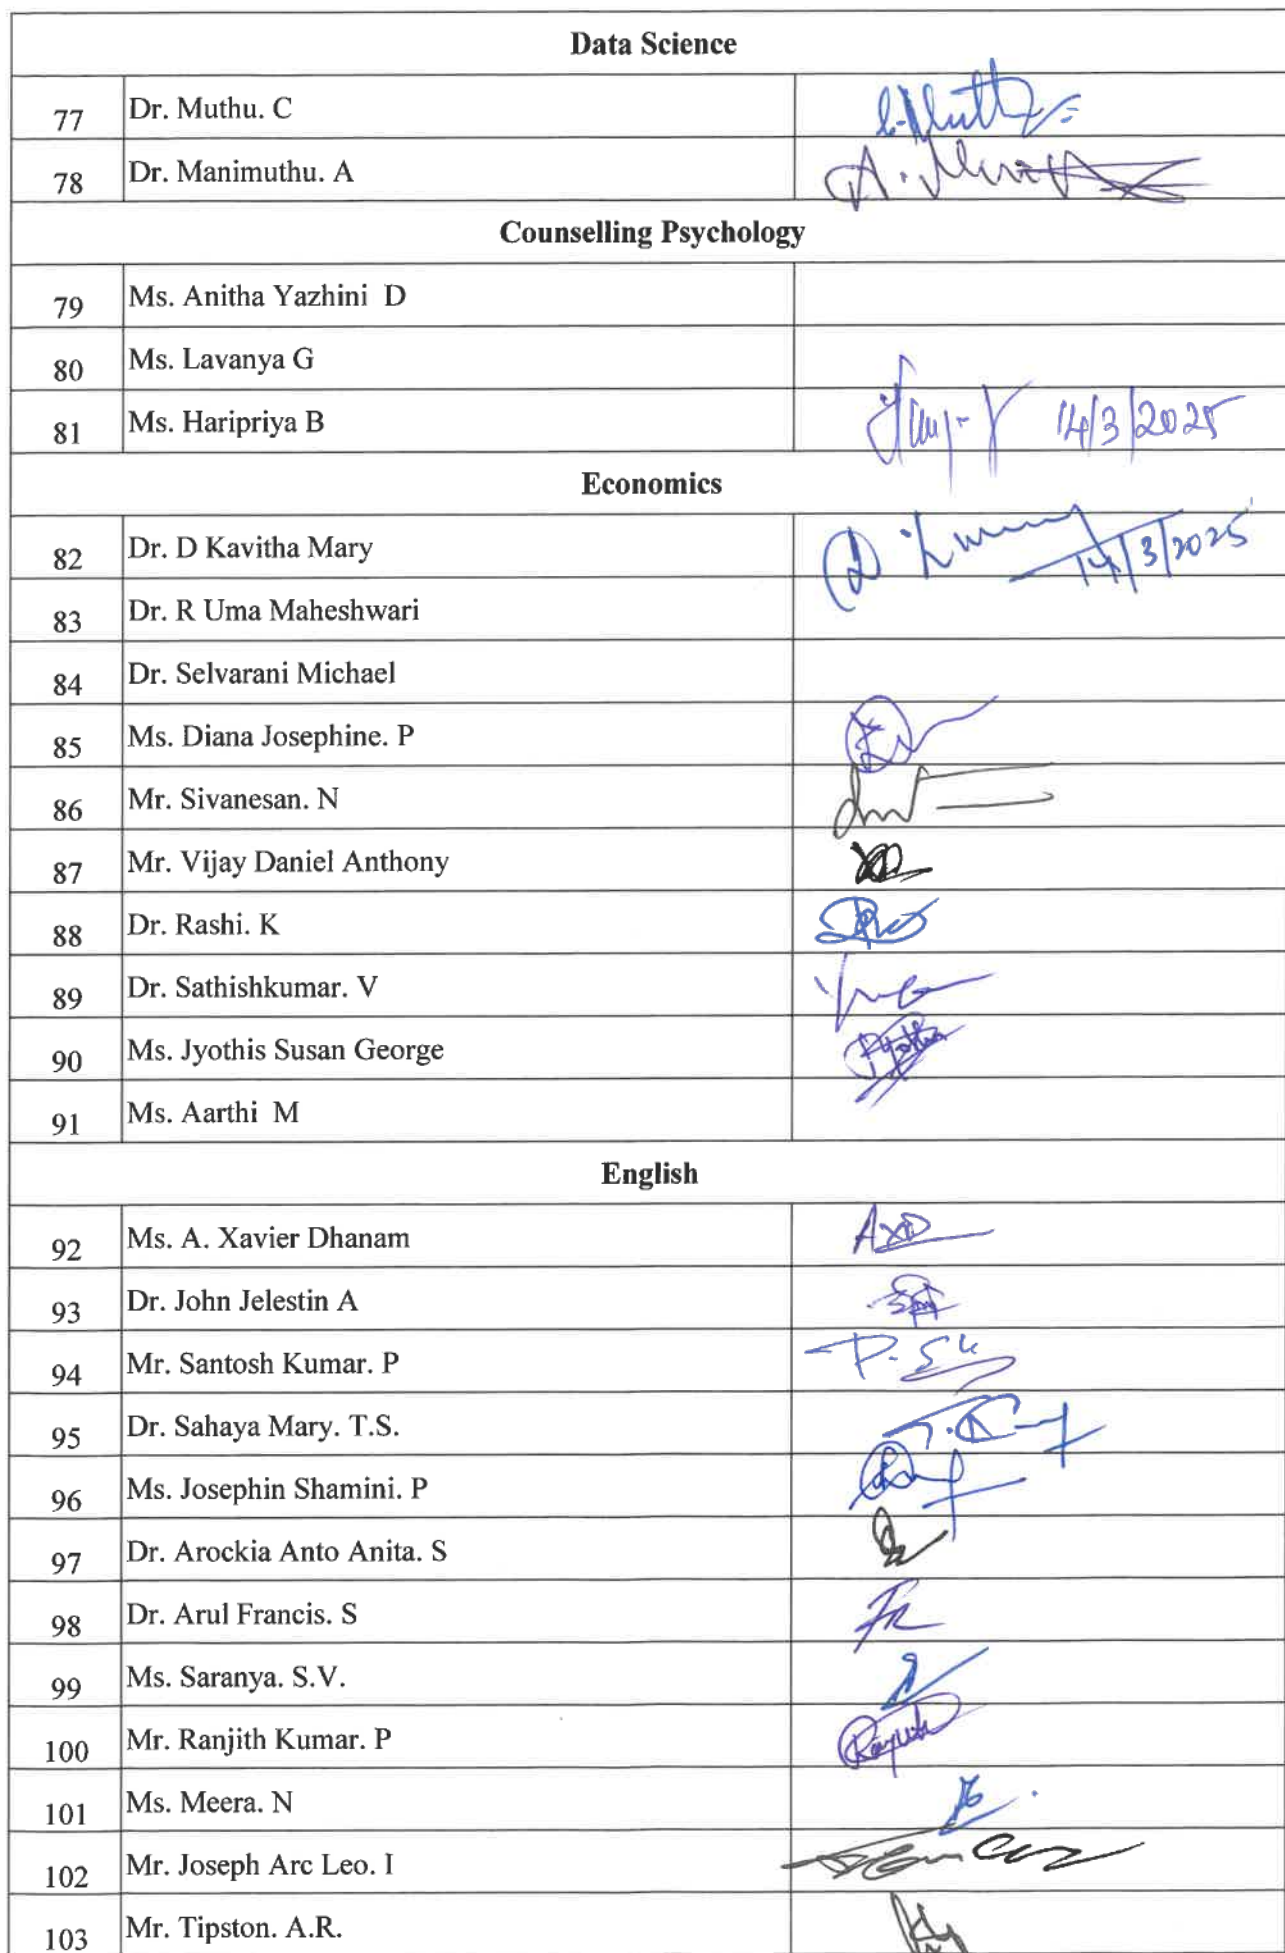 Data Science
77 Dr. Muthu. C
78 Dr. Manimuthu. A
Counselling Psychology
79 Ms. Anitha Yazhini D
80 Ms. Lavanya G
81 Ms. Haripriya B 14/3/2025
Economics
82 Dr. D Kavitha Mary 14/3/2025
83 Dr. R Uma Maheshwari
84 Dr. Selvarani Michael
85 Ms. Diana Josephine. P
86 Mr. Sivanesan. N
87 Mr. Vijay Daniel Anthony
88 Dr. Rashi. K
89 Dr. Sathishkumar. V
90 Ms. Jyothis Susan George
91 Ms. Aarthi M
English
92 Ms. A. Xavier Dhanam AXD
93 Dr. John Jelestin A
94 Mr. Santosh Kumar. P
95 Dr. Sahaya Mary. T.S.
96 Ms. Josephin Shamini. P
97 Dr. Arockia Anto Anita. S
98 Dr. Arul Francis. S
99 Ms. Saranya. S.V.
100 Mr. Ranjith Kumar. P
101 Ms. Meera. N
102 Mr. Joseph Arc Leo. I
103 Mr. Tipston. A.R.